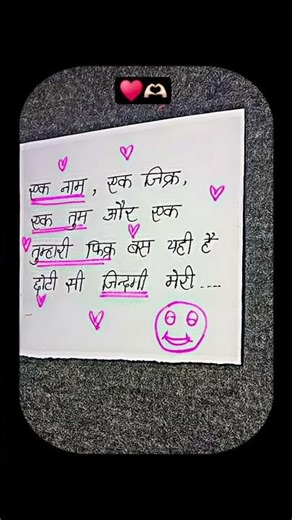 एक नाम, एक जिक्र,
एक तुम और एक
तुम्हारी फिक्र बस यही है
छोटी सी जिन्दगी मेरी....